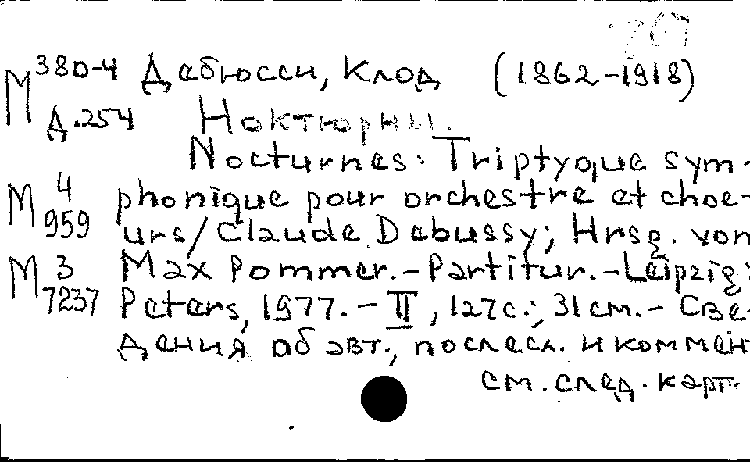 М 380-4 Дебюсси, Клод (1862-1918)
Д.254 Ноктюрны.
Nocturnes: Triptyque sym-
М 4 959 phonique pour orchestre et choe-
urs/Claude Debussy; Hrsg. von
М 3 7237 Max Pommer.-Partitur.-Leipzig:
Peters, 1977.-II, 127с.; 31см.- Све-
дения об авт., послесл. и коммен
см. след. карт.